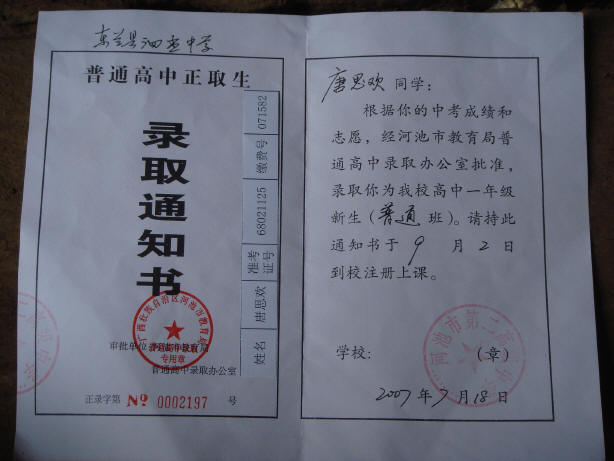 东兰县泗孟中学
普通高中正取生
录取通知书
姓名 唐思欢 准考证号 68021125 缴费号 071582
广西壮族自治区河池市教育局
专用章
审批单位
普通高中录取办公室
正录字第 № 0002197 号
唐思欢 同学:
根据你的中考成绩和
志愿,经河池市教育局普
通高中录取办公室批准,
录取你为我校高中一年级
新生(普通班)。请持此
通知书于 9 月 2 日
到校注册上课。
河池市第二高
学校: (章)
2007 年 7 月 18 日